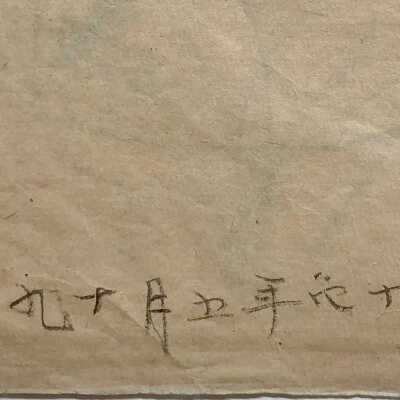 十六年五月十九